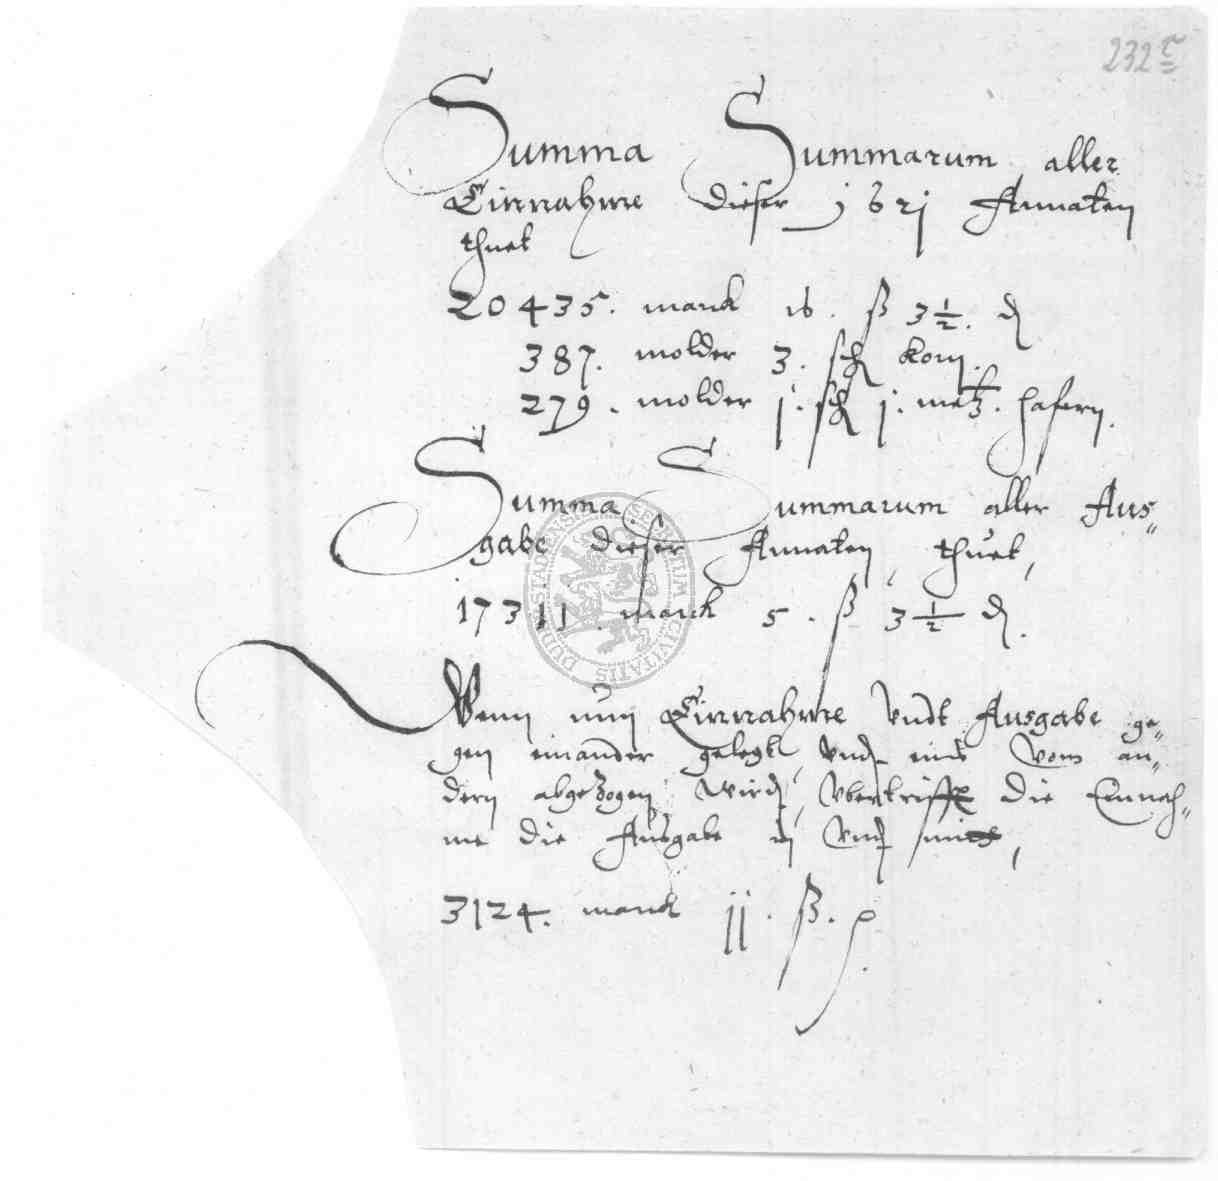 232 r
Summa Summarum aller
Einnahme dieser j62j Annaten
thuet
20435. marck 16. ß 3 1/2. d
387. molder 3. sch korn.
279. molder j. sch j. metz. hafern.
Summa Summarum aller Aus„
gabe dieser Annaten, thuet,
17311. marck 5. ß 3 1/2 d.
Wenn nun Einnahme vndt Ausgabe ge„
gen einander gelegt, vnd eins vom an„
dern abgezogen wird, vbertrifft die Einnah„
me die Ausgabe in vnd mit,
3124. marck jj. ß.
SIGILLUM CIVITATIS DUDERSTADENSIS